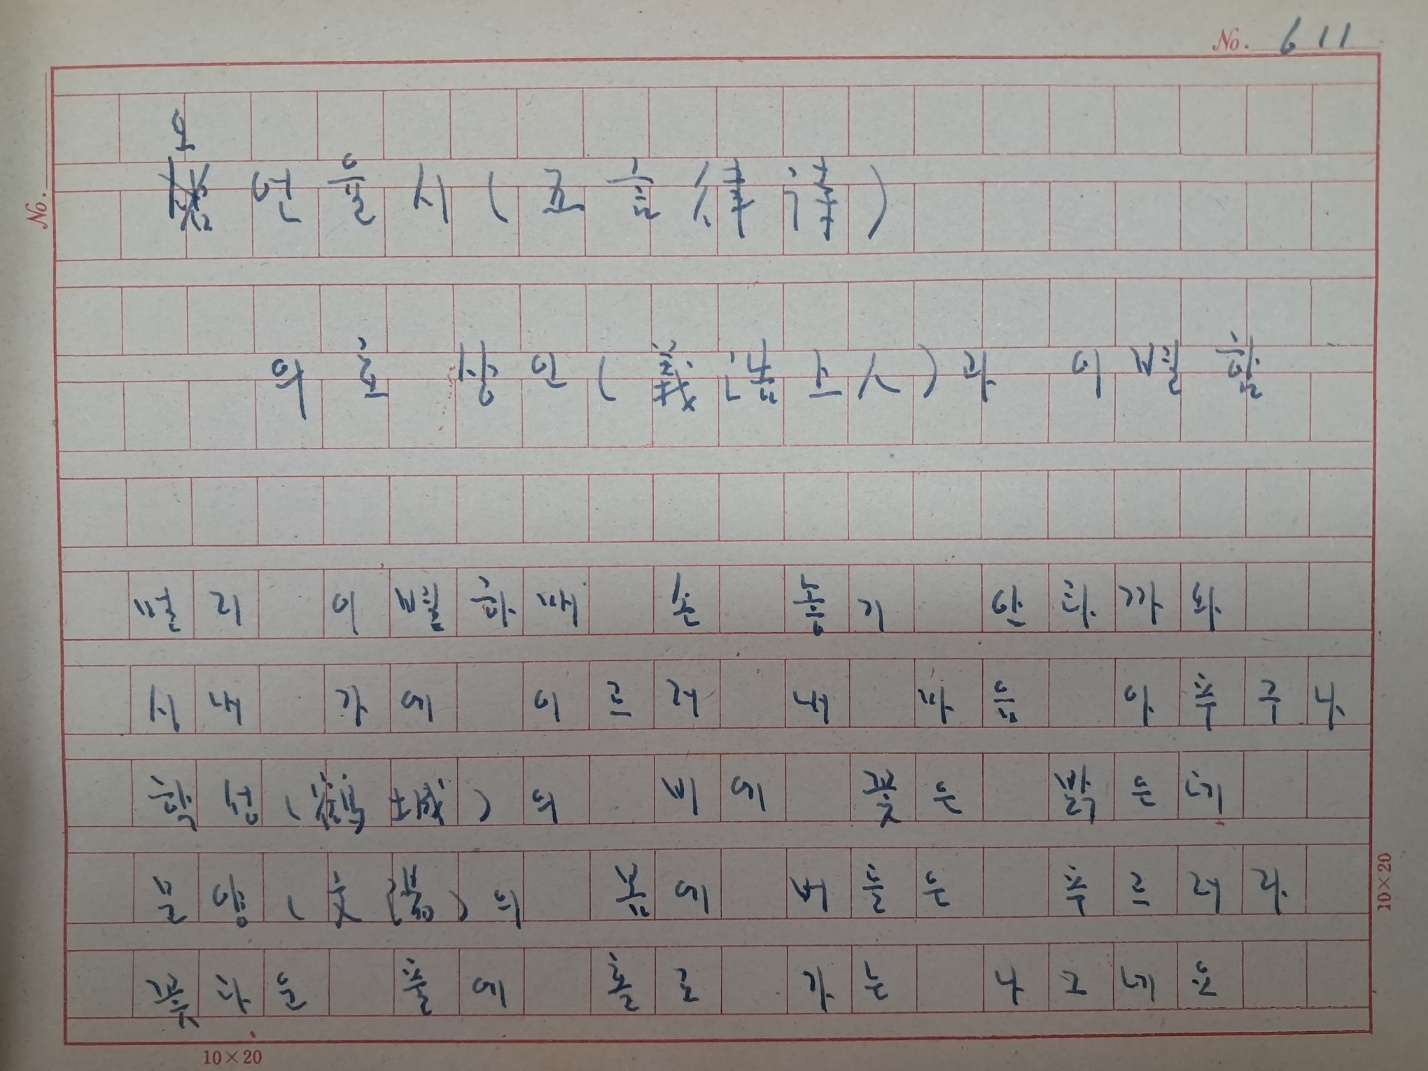 No. 611
No.
오
언율시(五言律詩)
의호 상인(義浩上人)과 이별함
멀리 이별하매 손 놓기 안타까와
시내 가에 이르러 내 마음 아푸구나
학성(鶴城)의 비에 꽃은 밝은데
문양(汶陽)의 봄에 버들은 푸르러라
꽃다운 풀에 홀로 가는 나그네요
10×20
10×20